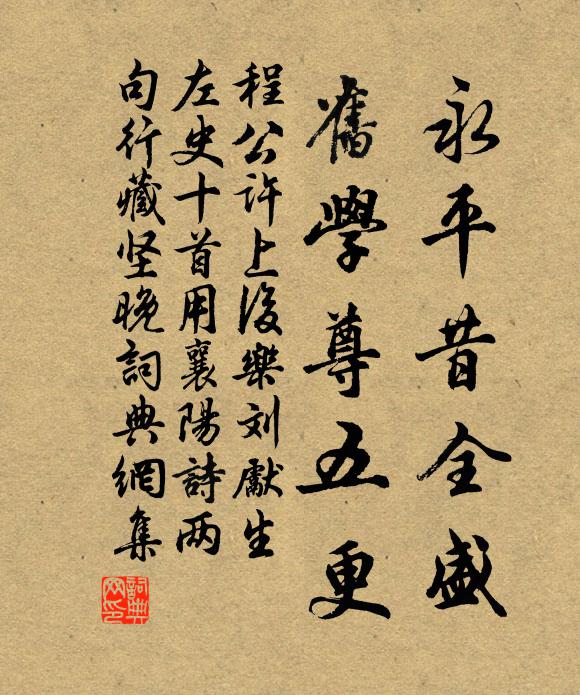 永平昔全盛
舊學尊五更
程公许上後樂刘獻生
左史十首用襄陽詩两
句行藏坚晚詞典網集
詞典网印